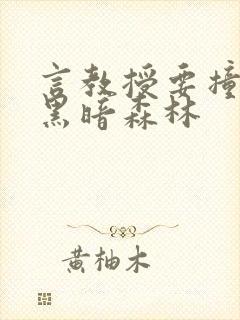 言教授要撞
黑暗森林
黄柚木